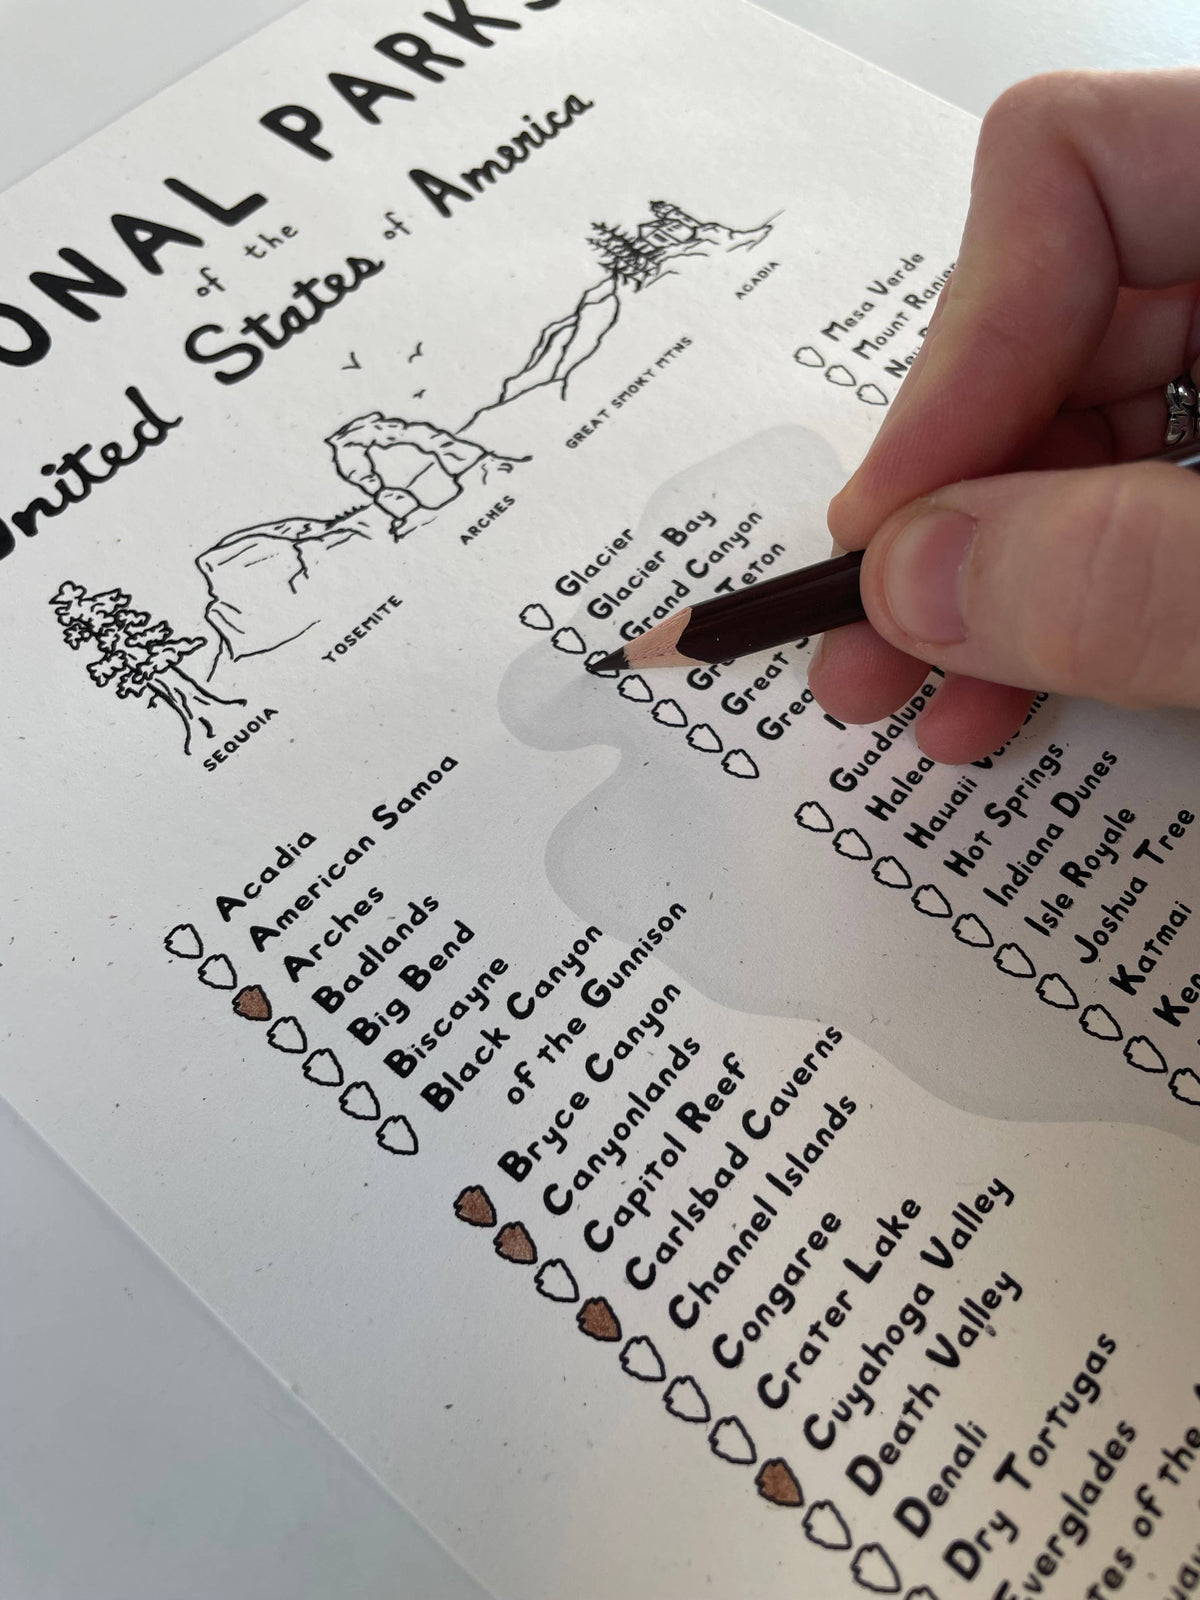 PARKS
of the
United States of America
SEQUOIA
YOSEMITE
ARCHES
GREAT SMOKY MTNS
ACADIA
Acadia
American Samoa
Arches
Badlands
Big Bend
Biscayne
Black Canyon
of the Gunnison
Bryce Canyon
Canyonlands
Capitol Reef
Carlsbad Caverns
Channel Islands
Congaree
Crater Lake
Cuyahoga Valley
Death Valley
Denali
Dry Tortugas
Everglades
of the
Glacier
Glacier Bay
Grand Canyon
Teton
Great
Guadalupe
Hawaii
Hot Springs
Indiana Dunes
Isle Royale
Joshua Tree
Katmai
Mesa Verde
Mount